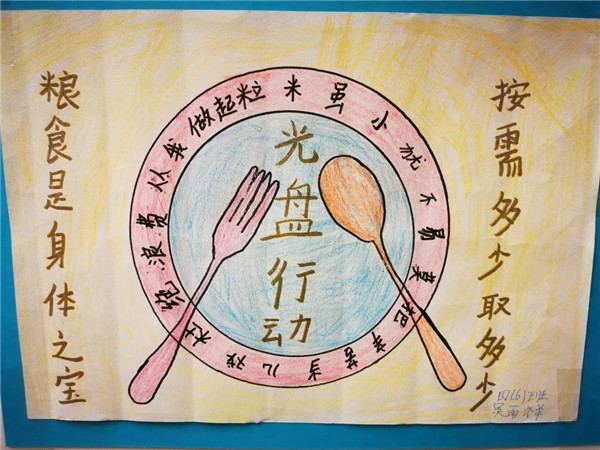 粮食是身体之宝
光盘行动
杜绝浪费从我做起粒米虽小不易莫把辛苦当儿戏
按需多少取多少
四(6)班
吴雨